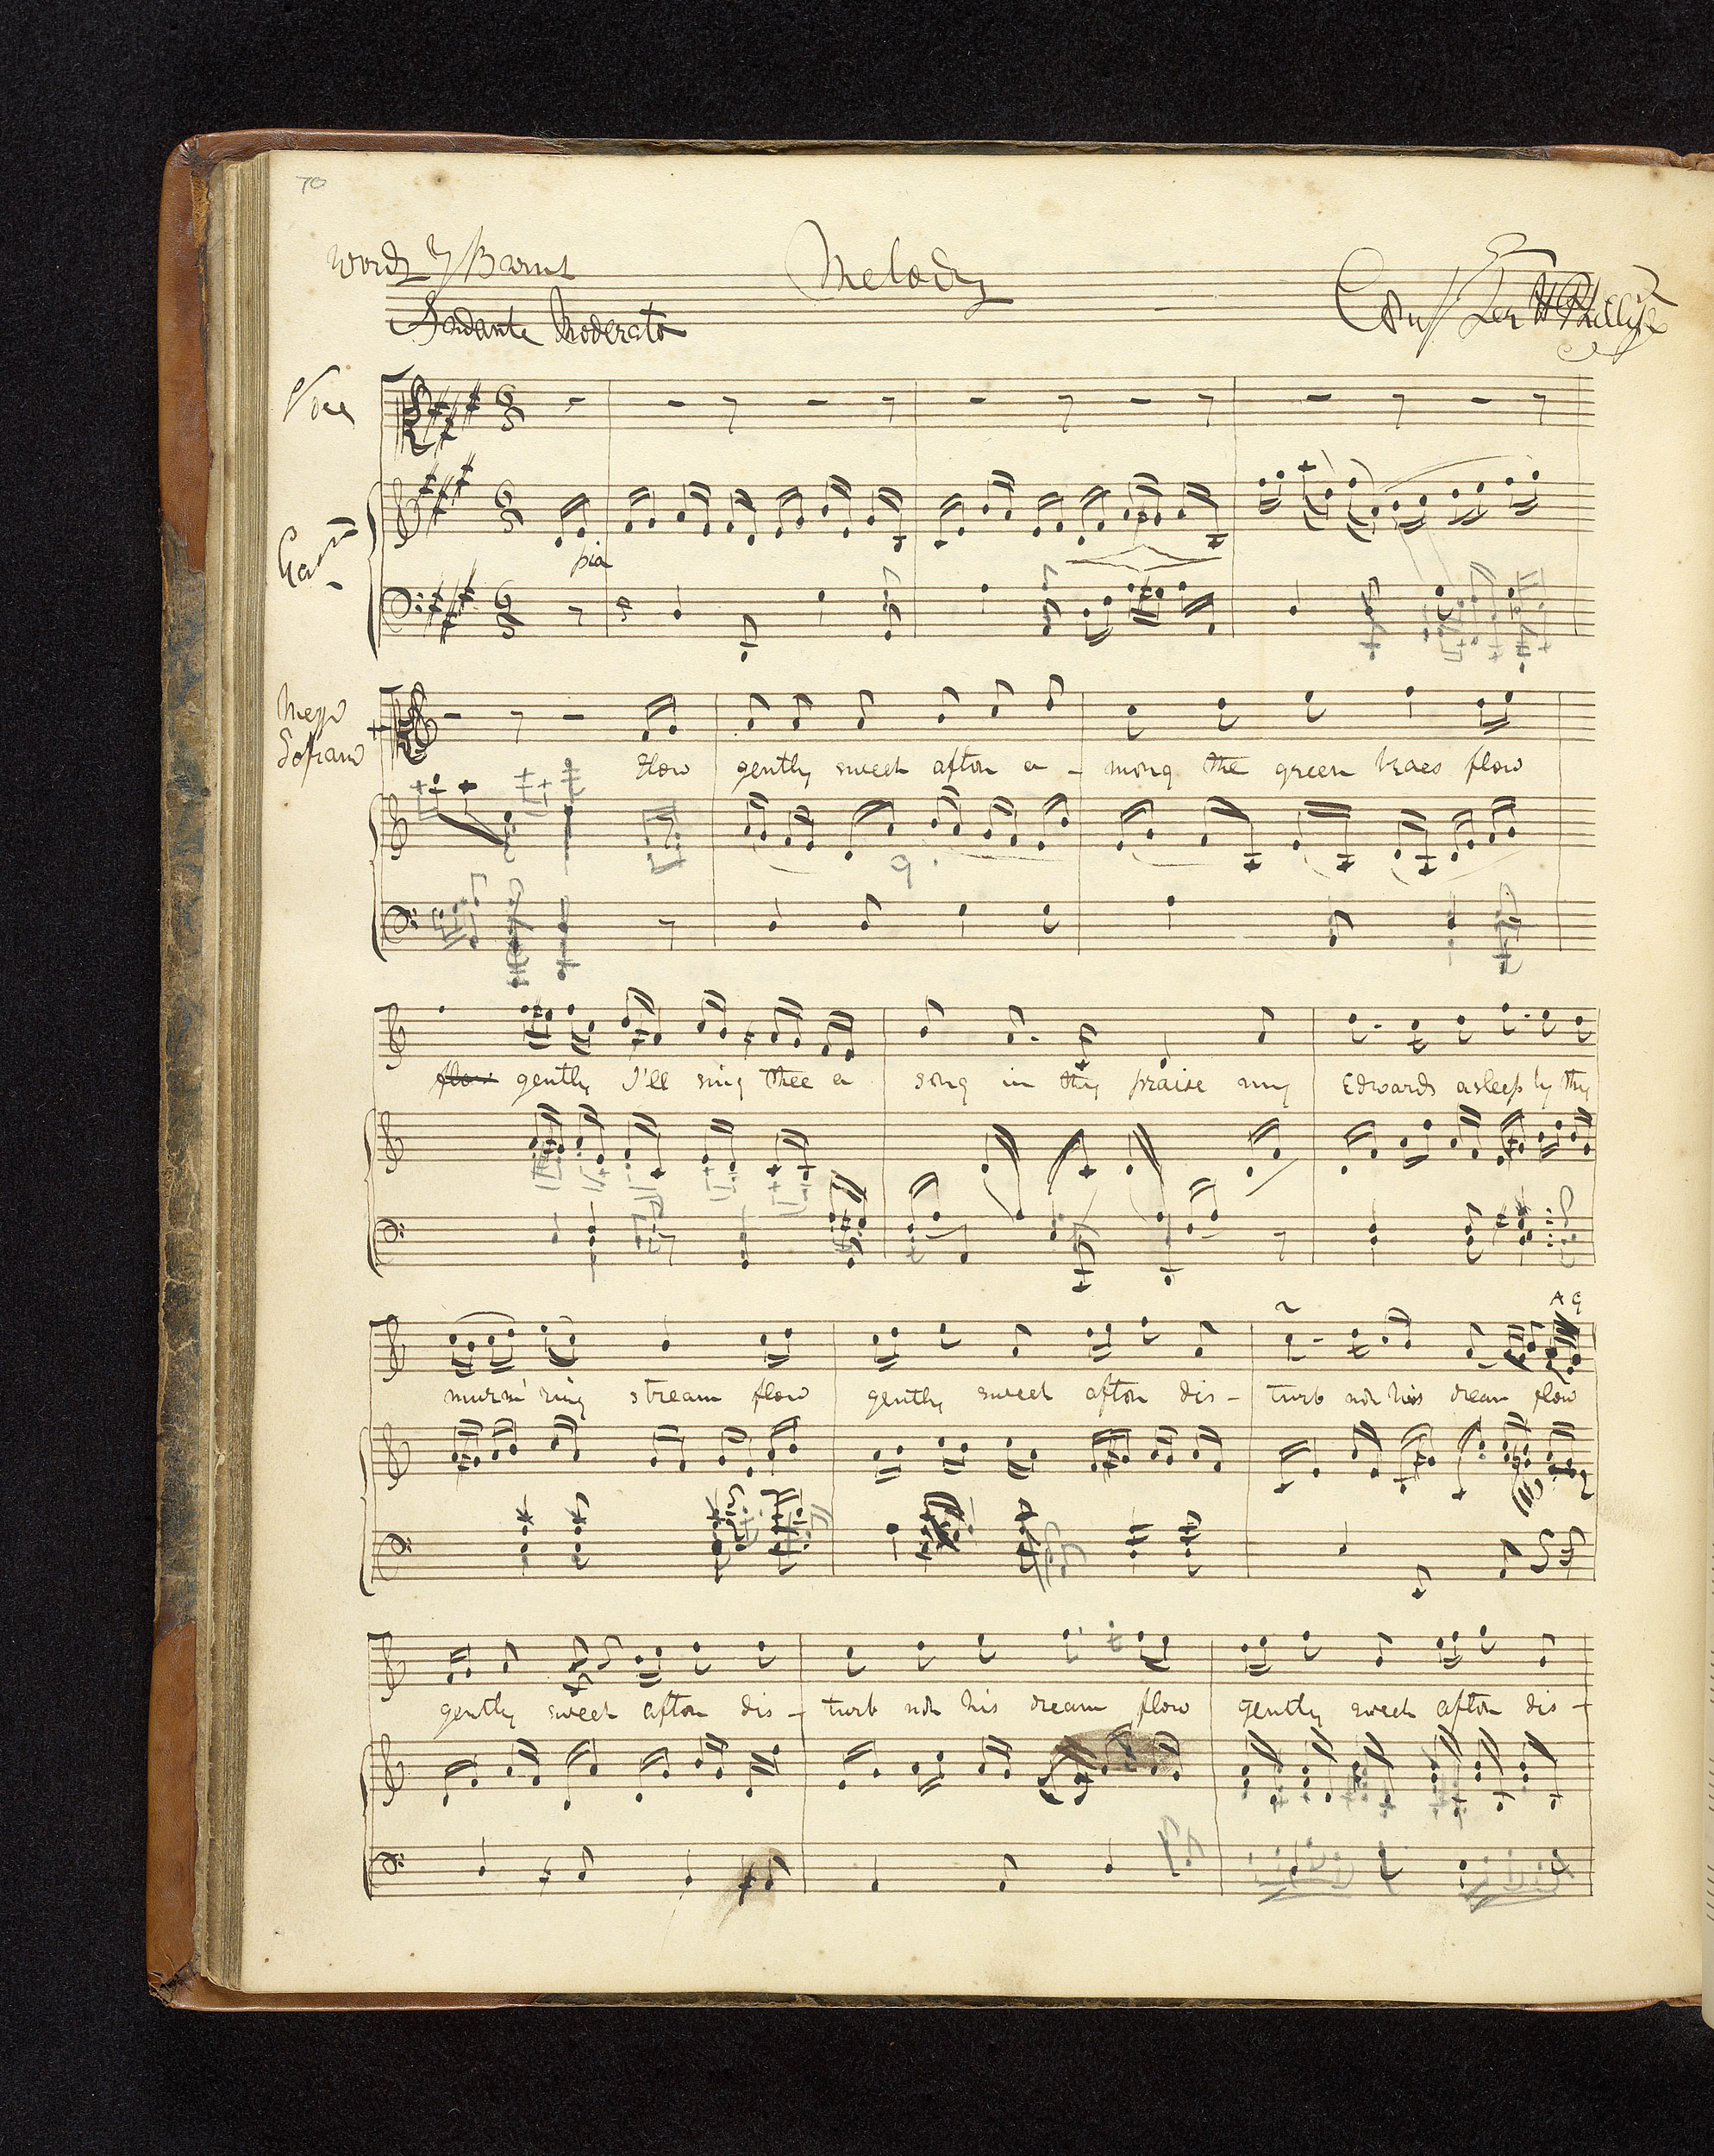 70
Words by Burns
Melody
Andante Moderato
Voice
6 8
pia
Mezzo
Soprano
Flow gently sweet afton a - mong the green braes flow
flow gently I'll sing thee a song in thy praise my Edwards asleep by thy
A G
murm'ring stream flow gently sweet afton dis - turb not his dream flow
gently sweet afton dis - turb not his dream flow gently sweet afton dis -